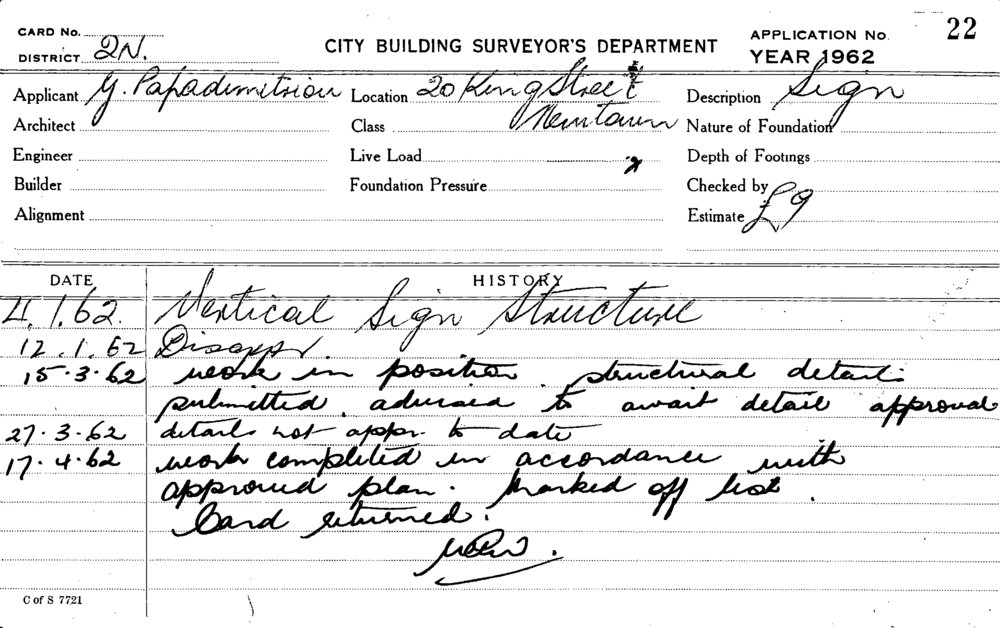 CARD No. APPLICATION No. 22
DISTRICT 2N. CITY BUILDING SURVEYOR'S DEPARTMENT YEAR 1962
Applicant G. Papadimitriou Location 20 King Street Description Sign
Architect Class Newtown Nature of Foundation
Engineer Live Load Depth of Footings
Builder Foundation Pressure Checked by
Alignment Estimate £9
DATE HISTORY
4.1.62. Vertical Sign Structure
12.1.62 Disappr.
15.3.62 work in position. structural details
submitted. advised to await detail approval
27.3.62 details not appr. to date
17.4.62 work completed in accordance with
approved plan. Marked off list.
Card returned.
C of S 7721